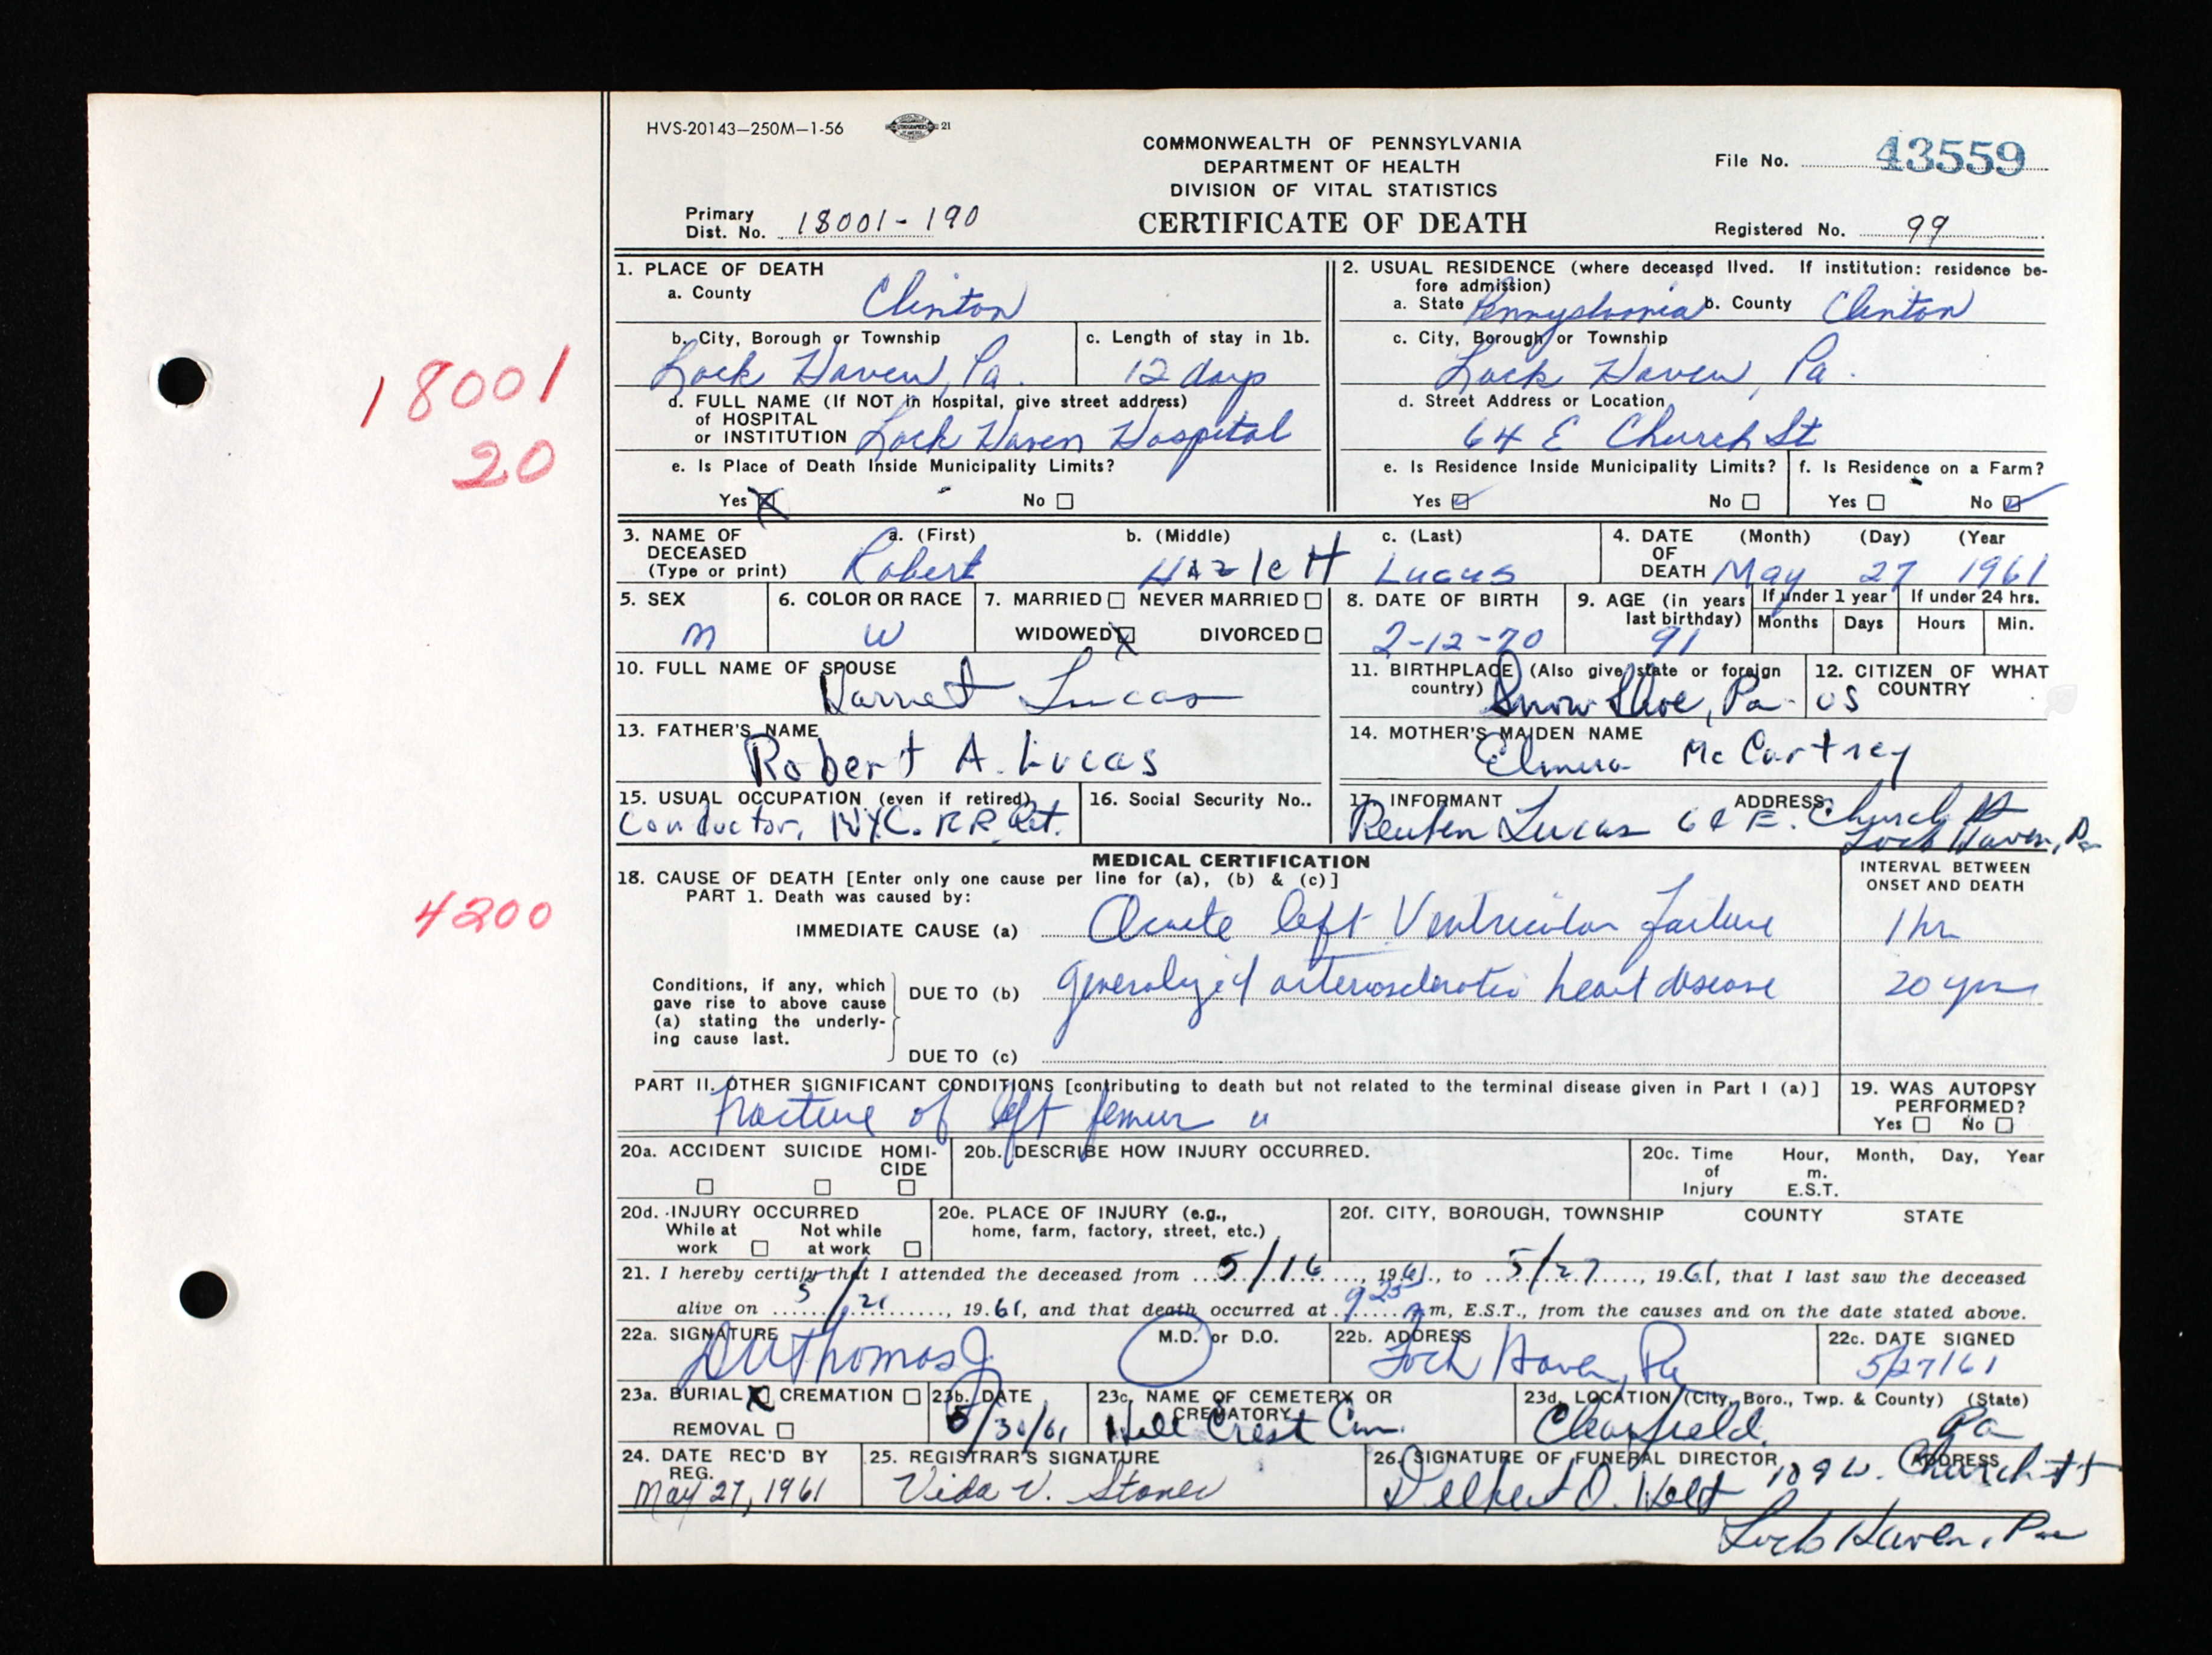 HVS-20143—250M—1-56
21
COMMONWEALTH OF PENNSYLVANIA
DEPARTMENT OF HEALTH
DIVISION OF VITAL STATISTICS
CERTIFICATE OF DEATH
File No. 43559
Primary
Dist. No. 18001-190
Registered No. 99
18001
20
4200
1. PLACE OF DEATH
a. County Clinton
b. City, Borough or Township
Lock Haven, Pa.
c. Length of stay in 1b.
12 days
d. FULL NAME (If NOT in hospital, give street address)
of HOSPITAL
or INSTITUTION Lock Haven Hospital
e. Is Place of Death Inside Municipality Limits?
Yes No
2. USUAL RESIDENCE (where deceased lived. If institution: residence be-
fore admission)
a. State Pennyslvania b. County Clinton
c. City, Borough or Township
Lock Haven, Pa.
d. Street Address or Location
64 E Church St
e. Is Residence Inside Municipality Limits?
Yes No
f. Is Residence on a Farm?
Yes No
3. NAME OF
DECEASED
(Type or print)
a. (First) b. (Middle) c. (Last)
Robert Hazlett Lucas
4. DATE
OF
DEATH
(Month) (Day) (Year
May 27 1961
5. SEX
M
6. COLOR OR RACE
W
7. MARRIED NEVER MARRIED
WIDOWED DIVORCED
8. DATE OF BIRTH
2-12-70
9. AGE (in years
last birthday)
91
If under 1 year
Months Days
If under 24 hrs.
Hours Min.
10. FULL NAME OF SPOUSE
Lucas
11. BIRTHPLACE (Also give state or foreign
country) Snow Shoe, Pa.
12. CITIZEN OF WHAT
COUNTRY
US
13. FATHER'S NAME
Robert A. Lucas
14. MOTHER'S MAIDEN NAME
Elmira McCartney
15. USUAL OCCUPATION (even if retired)
Conductor, NYC. RR Ret.
16. Social Security No..
17. INFORMANT ADDRESS
Reuben Lucas 64 E. Church St
Lock Haven, Pa
MEDICAL CERTIFICATION
18. CAUSE OF DEATH [Enter only one cause per line for (a), (b) & (c)]
PART 1. Death was caused by:
INTERVAL BETWEEN
ONSET AND DEATH
IMMEDIATE CAUSE (a) Acute left Ventricular failure 1 hr
Conditions, if any, which
gave rise to above cause
(a) stating the underly-
ing cause last.
DUE TO (b) generalized arteriosclerotic heart disease 20 yrs
DUE TO (c)
PART II. OTHER SIGNIFICANT CONDITIONS [contributing to death but not related to the terminal disease given in Part I (a)]
fracture of left femur
19. WAS AUTOPSY
PERFORMED?
Yes No
20a. ACCIDENT SUICIDE HOMI-
CIDE
20b. DESCRIBE HOW INJURY OCCURRED.
20c. Time Hour, Month, Day, Year
of m.
Injury E.S.T.
20d. INJURY OCCURRED
While at Not while
work at work
20e. PLACE OF INJURY (e.g.,
home, farm, factory, street, etc.)
20f. CITY, BOROUGH, TOWNSHIP COUNTY STATE
21. I hereby certify that I attended the deceased from 5/16, 1961, to 5/27, 1961, that I last saw the deceased
alive on 5/21, 1961, and that death occurred at 9 25 Am, E.S.T., from the causes and on the date stated above.
22a. SIGNATURE M.D. or D.O.
Thomas Jr
22b. ADDRESS
Lock Haven, Pa
22c. DATE SIGNED
5/27/61
23a. BURIAL CREMATION
REMOVAL
23b. DATE
5/30/61
23c. NAME OF CEMETERY OR
CREMATORY
Hill Crest Cem.
23d. LOCATION (City, Boro., Twp. & County) (State)
Clearfield. Pa
24. DATE REC'D BY
REG.
May 27, 1961
25. REGISTRAR'S SIGNATURE
Vida V. Stoner
26. SIGNATURE OF FUNERAL DIRECTOR ADDRESS
Delbert O. Helt 109 W. Church St
Lock Haven, Pa